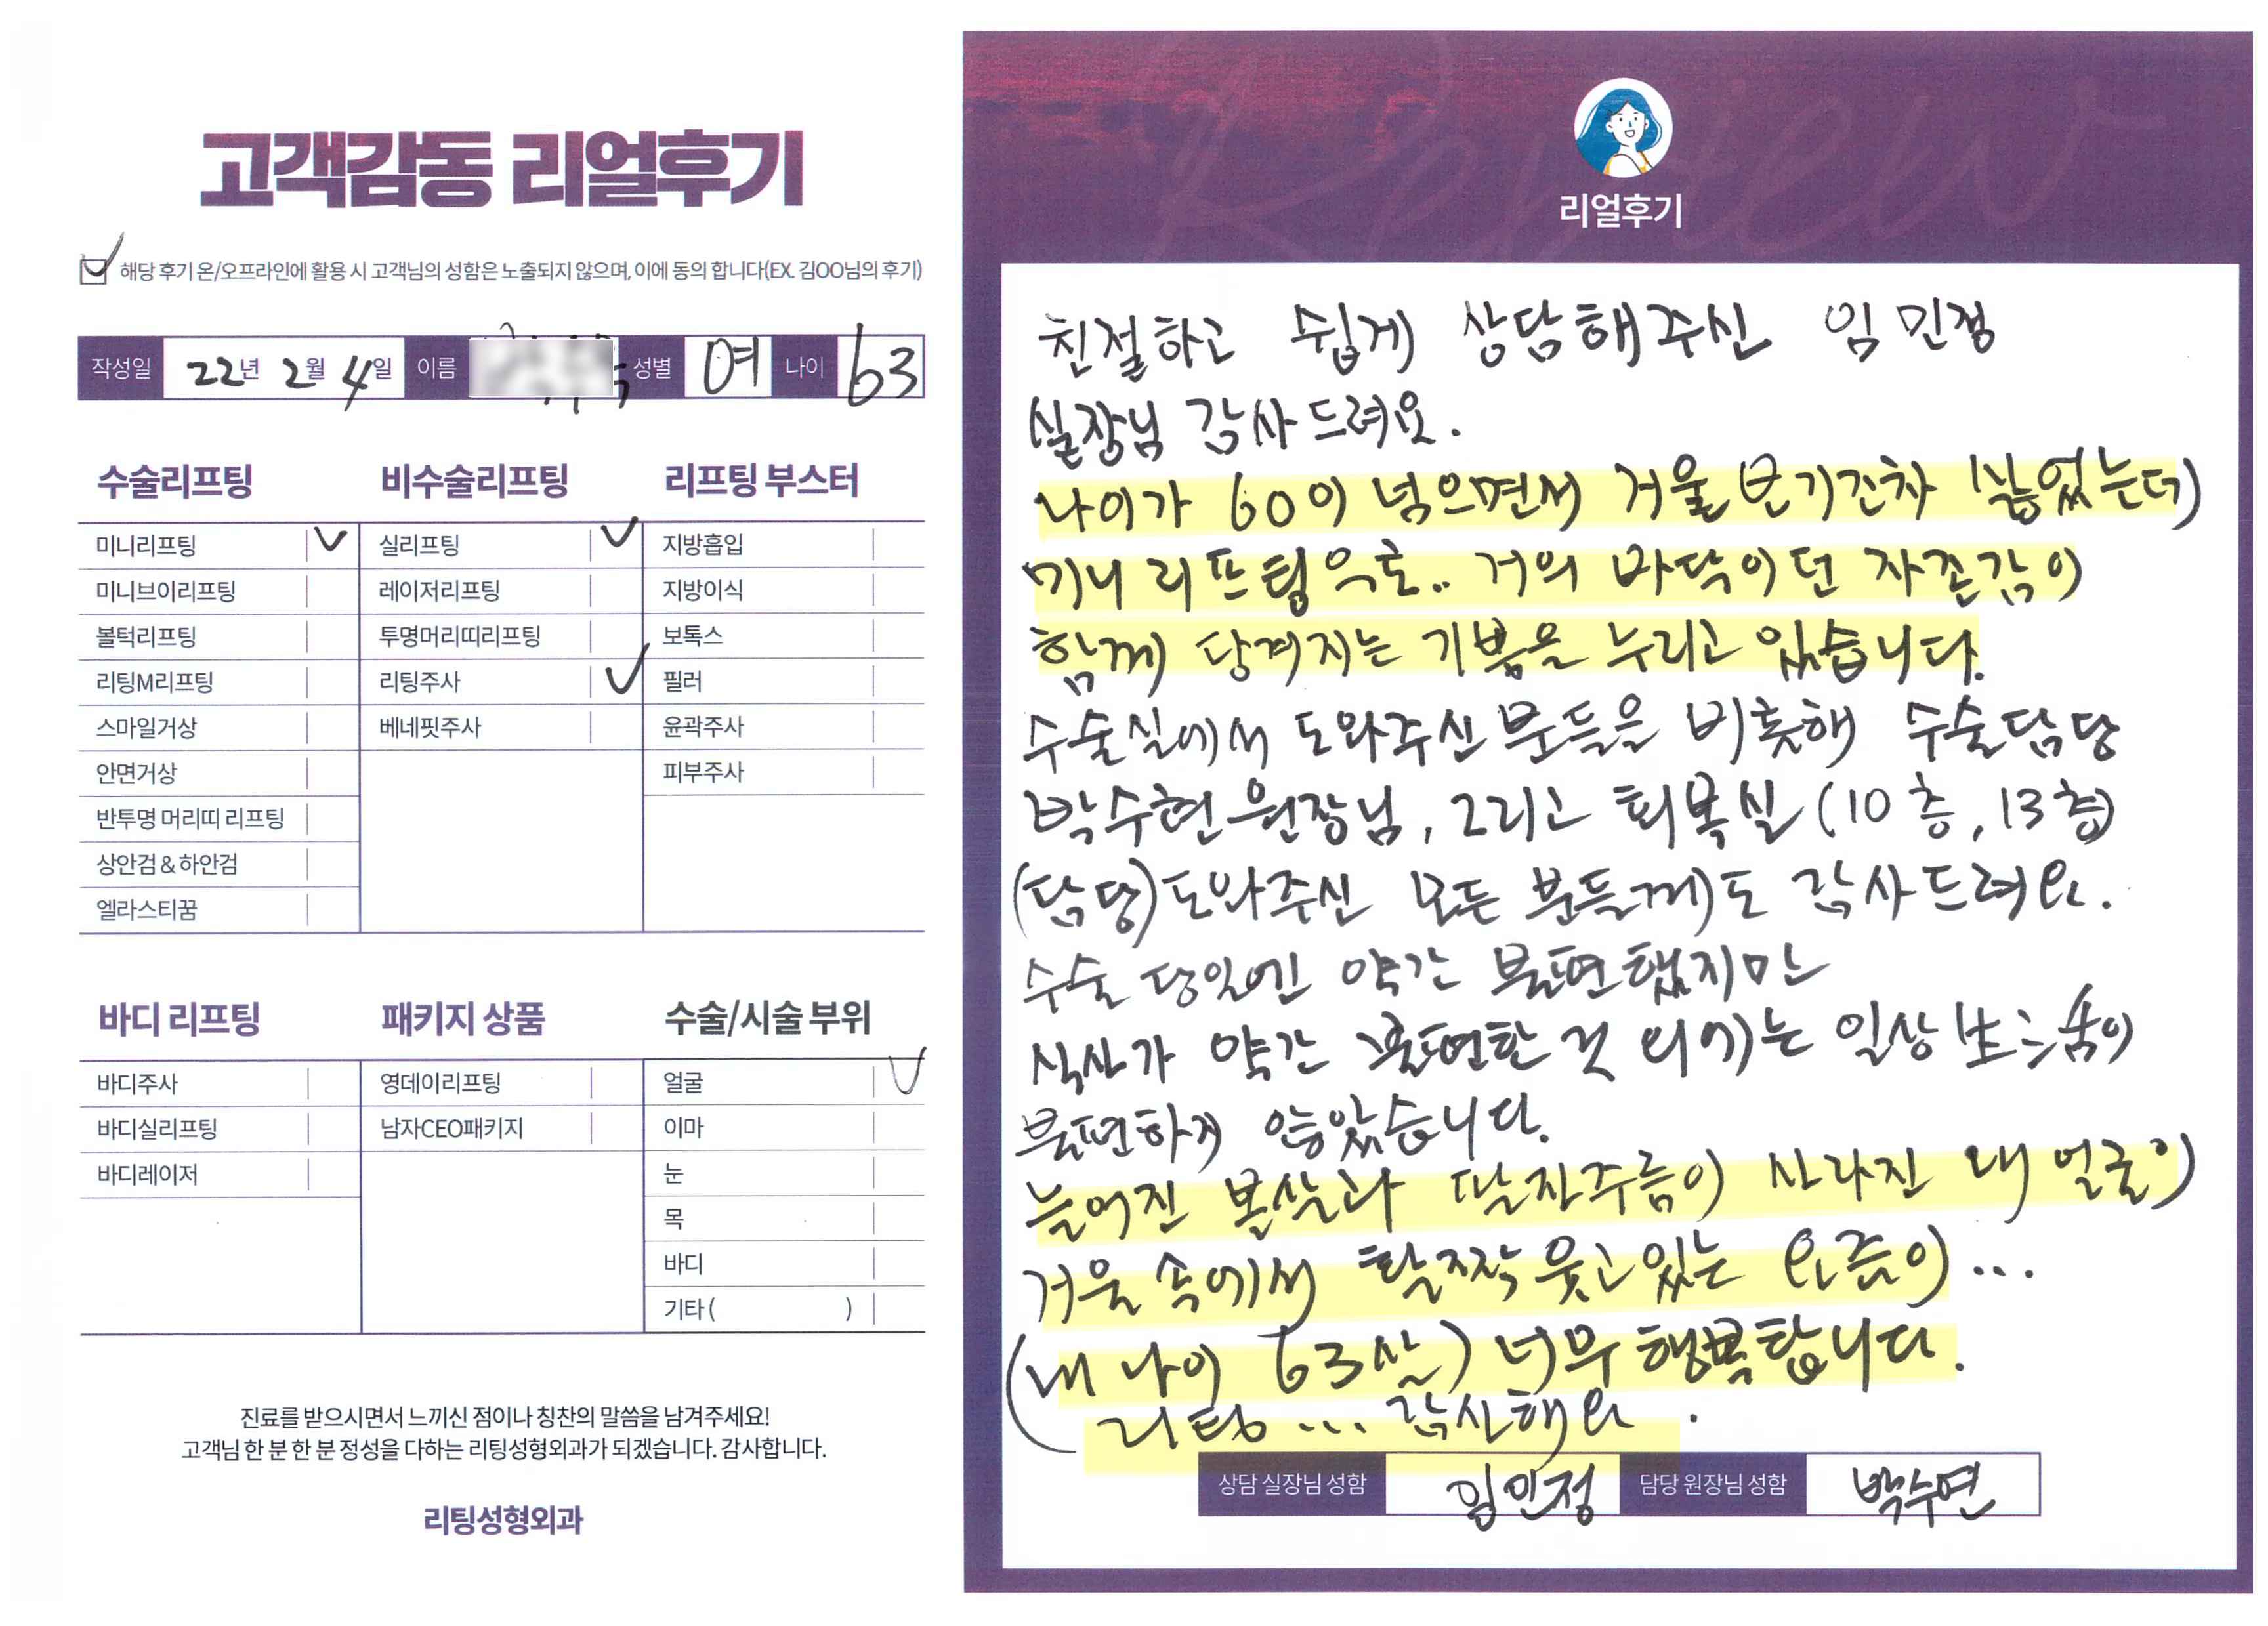 고객감동 리얼후기
해당 후기 온/오프라인에 활용 시 고객님의 성함은 노출되지 않으며, 이에 동의 합니다(EX. 김OO님의 후기)
작성일 22년 2월 4일 이름 성별 여 나이 63
수술리프팅
미니리프팅
미니브이리프팅
볼턱리프팅
리팅M리프팅
스마일거상
안면거상
반투명 머리띠 리프팅
상안검 & 하안검
엘라스티꿈
비수술리프팅
실리프팅
레이저리프팅
투명머리띠리프팅
리팅주사
베네핏주사
리프팅 부스터
지방흡입
지방이식
보톡스
필러
윤곽주사
피부주사
바디 리프팅
바디주사
바디실리프팅
바디레이저
패키지 상품
영데이리프팅
남자CEO패키지
수술/시술 부위
얼굴
이마
눈
목
바디
기타 ( )
진료를 받으시면서 느끼신 점이나 칭찬의 말씀을 남겨주세요!
고객님 한 분 한 분 정성을 다하는 리팅성형외과가 되겠습니다. 감사합니다.
리팅성형외과
Review
리얼후기
친절하고 쉽게 상담해주신 임민정
실장님 감사드려요.
나이가 60이 넘으면서 거울 보기조차 싫었는데
미니리프팅으로.. 거의 바닥이던 자존감이
함께 당겨지는 기쁨을 누리고 있습니다.
수술실에서 도와주신 분들을 비롯해 수술담당
박수현 원장님, 그리고 회복실 (10층, 13층)
(담당) 도와주신 모든 분들께도 감사드려요.
수술 당일엔 약간 불편했지만
식사가 약간 불편한 것 외에는 일상 生活이
불편하지 않았습니다.
늘어진 볼살과 팔자주름이 사라진 내 얼굴이
거울 속에서 활짝 웃고 있는 요즘이...
(내 나이 63살) 너무 행복합니다.
리팅... 감사해요.
상담 실장님 성함 임민정 담당 원장님 성함 박수연